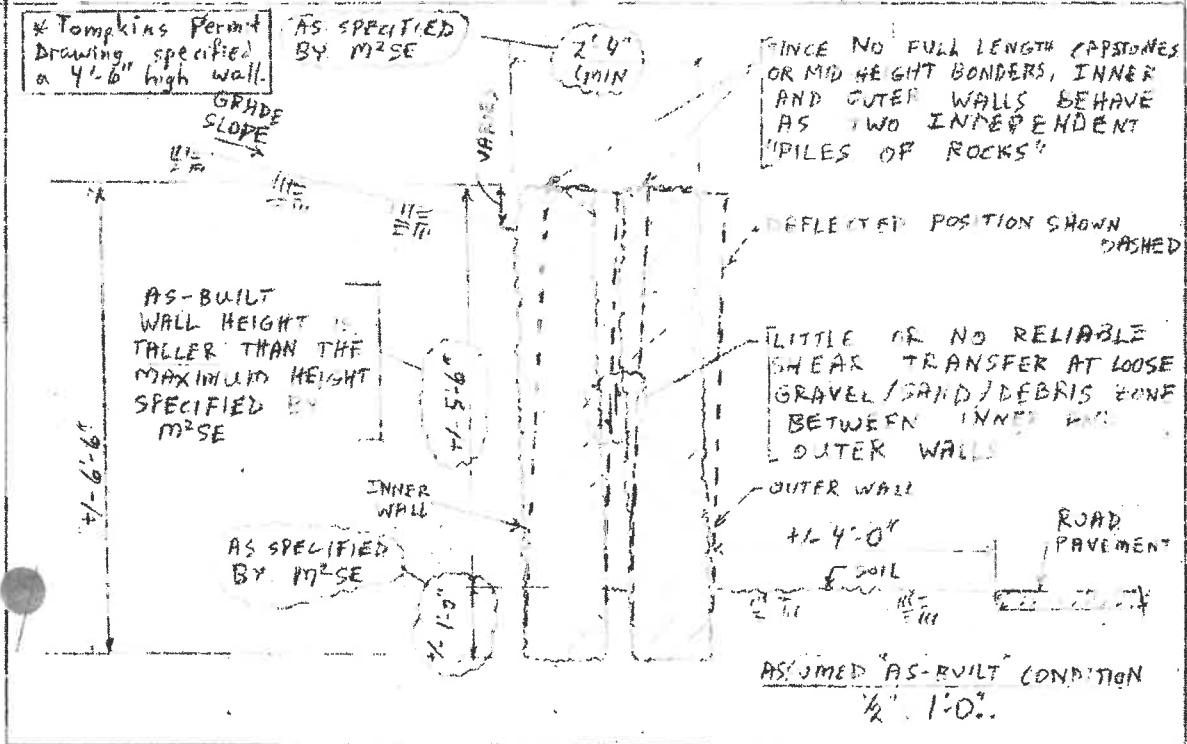 * Tompkins Permit
Drawing specified
a 4'-6" high wall.
AS SPECIFIED
BY M²SE
2'4"
(MIN
GRADE
SLOPE
VARIES
SINCE NO FULL LENGTH CAPSTONES
OR MID HEIGHT BONDERS, INNER
AND OUTER WALLS BEHAVE
AS TWO INDEPENDENT
"PILES OF ROCKS"
DEFLECTED POSITION SHOWN
DASHED
AS-BUILT
WALL HEIGHT IS
TALLER THAN THE
MAXIMUM HEIGHT
SPECIFIED BY
M²SE
LITTLE OR NO RELIABLE
SHEAR TRANSFER AT LOOSE
GRAVEL/SAND/DEBRIS ZONE
BETWEEN INNER
OUTER WALLS
INNER
WALL
OUTER WALL
+/- 4'-0"
ROAD
PAVEMENT
SOIL
AS SPECIFIED
BY M²SE
ASSUMED "AS-BUILT" CONDITION
½" 1'-0".